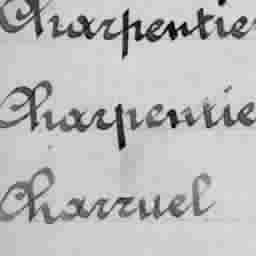 Charpentier
Charpentie
Charruel